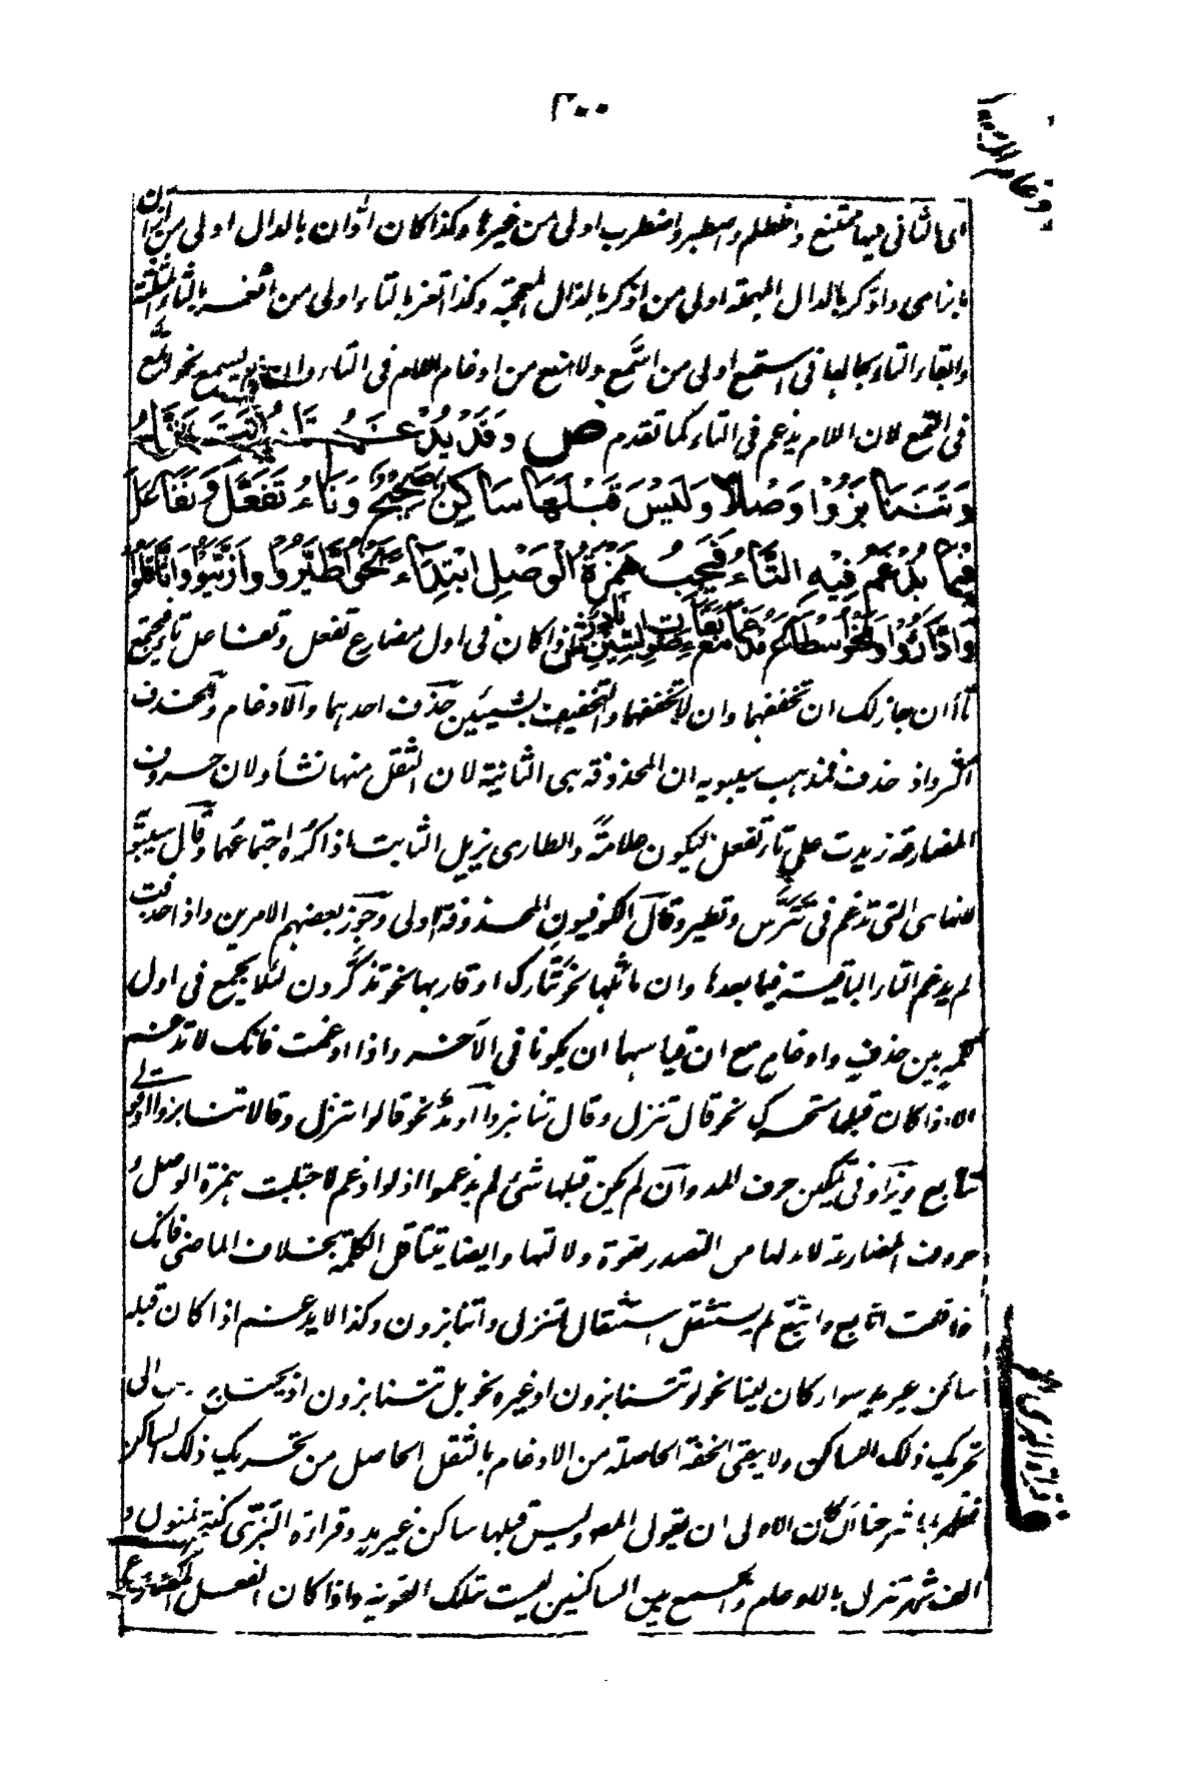 ٣٠٠
الى الثانى فيهما ممتنع واظطلم واصطبر واضطرب اولى من غيرها وكذا كان ادّان بالدال اولى من ازان
بالزاى واذكر بالدال المهملة اولى من اذكر بالذال المعجمة وكذا اتغر بالتاء اولى من اثغر بالثاء المثلثة
وابقاء التاء بحالها فى استمع اولى من اسّمع ولا منع من ادغام اللام فى التاء وان لم يسمع نحو اتّمع
فى التمع لان اللام يدغم فى التاء كما تقدم ص وَقَدْ يُدْغَمُ تَاءُ نحو تَتَنَزَّلُ
وَتَتَنَابَزُوا وَصْلًا وَلَيْسَ قَبْلَهَا سَاكِنٌ صَحِيْحٌ وَتَاءُ تَفَعَّلَ وَتَفَاعَلَ
فِيْمَا يُدْغَمُ فِيْهِ التَّاءُ فَيَجِبُ هَمْزَةُ الْوَصْلِ ابْتِدَاءً نَحْوُ اطَّيَّرُوْا وَازَّيَّنُوْا وَاثَّاقَلُوْا
وَادَّارَؤُوْا وَنَحْوُ اسْطَّاعَ مُدْغَمًا مَعَ بَقَاءِ صَوْتِ السِّيْنِ نَادِرٌ ش اذا كان فى اول مضارع تفعل وتفاعل تاء فيجتمع
تاءان جاز لك ان تخففهما وان لا تخففهما والتخفيف بشيئين حذف احدهما والادغام والحذف
اكثر واذ حذف فمذهب سيبويه ان المحذوفة هى الثانية لان الثقل منها نشأ ولان حروف
المضارعة زيدت على تاء تفعل ليكون علامة والطارى يزيل الثابت اذا كره اجتماعهما وقال سيبويه
لانها هى التى تدغم فى تترّس وتطير وقال الكوفيون المحذوفة الاولى وجوّز بعضهم الامرين واذا حذفت
لم يدغم التاء الباقية فيما بعدها وان ماثلها نحو تتارك او قاربها نحو تذكّرون لئلا يجمع فى اول
كلمة بين حذف وادغام مع ان قياسهما ان يكونا فى الآخر واذا ادغمت فانك لا تدغم
الا اذا كان قبلها متحرك نحو قال تنزل وقال تنابزوا او مدّ نحو قالوا تنزل وقالا تنابزوا او قولى
تتابع ويزاد فى تمكين حرف المد وان لم يكن قبلها شئ لم يدغموا اذ لو ادغم لاجتلبت همزة الوصل و
حروف المضارعة لا بد لها من التصدر لقوة دلالتها وايضا تتثاقل الكلمة بخلاف الماضى فانك
اذا قلت اتّابع واتّبع لم يستثقل استثقال اتنزل واتنابزون وكذا لا يدغم اذا كان قبله
ساكن غير مد سواء كان لينا نحو لو تتنابزون او غيره نحو بل تتنابزون اذ يحتاج الى
تحريك ذلك الساكن ولا يفى الخفة الحاصلة من الادغام بالثقل الحاصل من تحريك ذلك الساكن
فظهر بما شرحنا ان كان الاولى ان يقول المص وليس قبلها ساكن غير مد وقراءة البزى كنتم تمنون و
الف شهر تنزل بالادغام والجمع بين الساكنين ليست بتلك القوية واذا كان الفعل المضارع